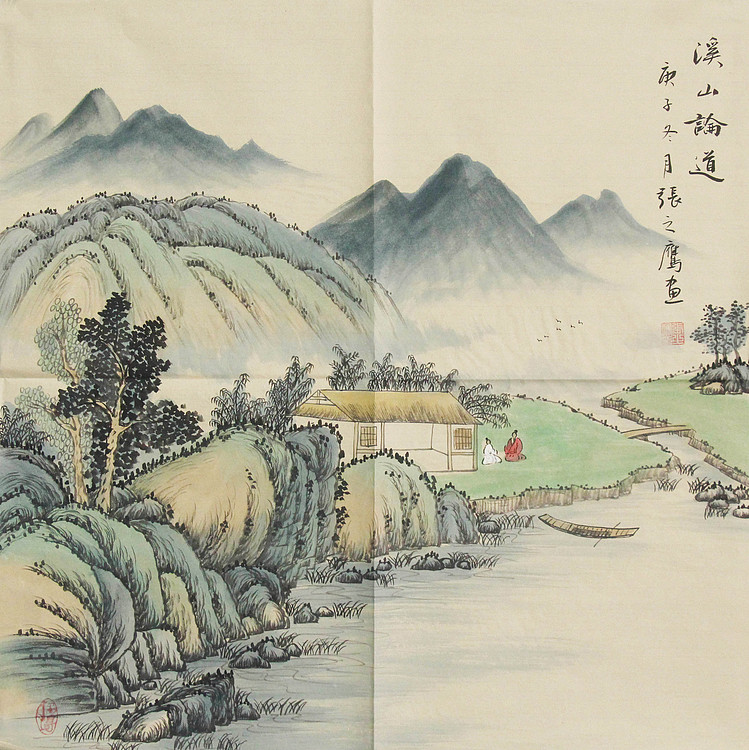 溪山論道
庚子冬月張之鷹画